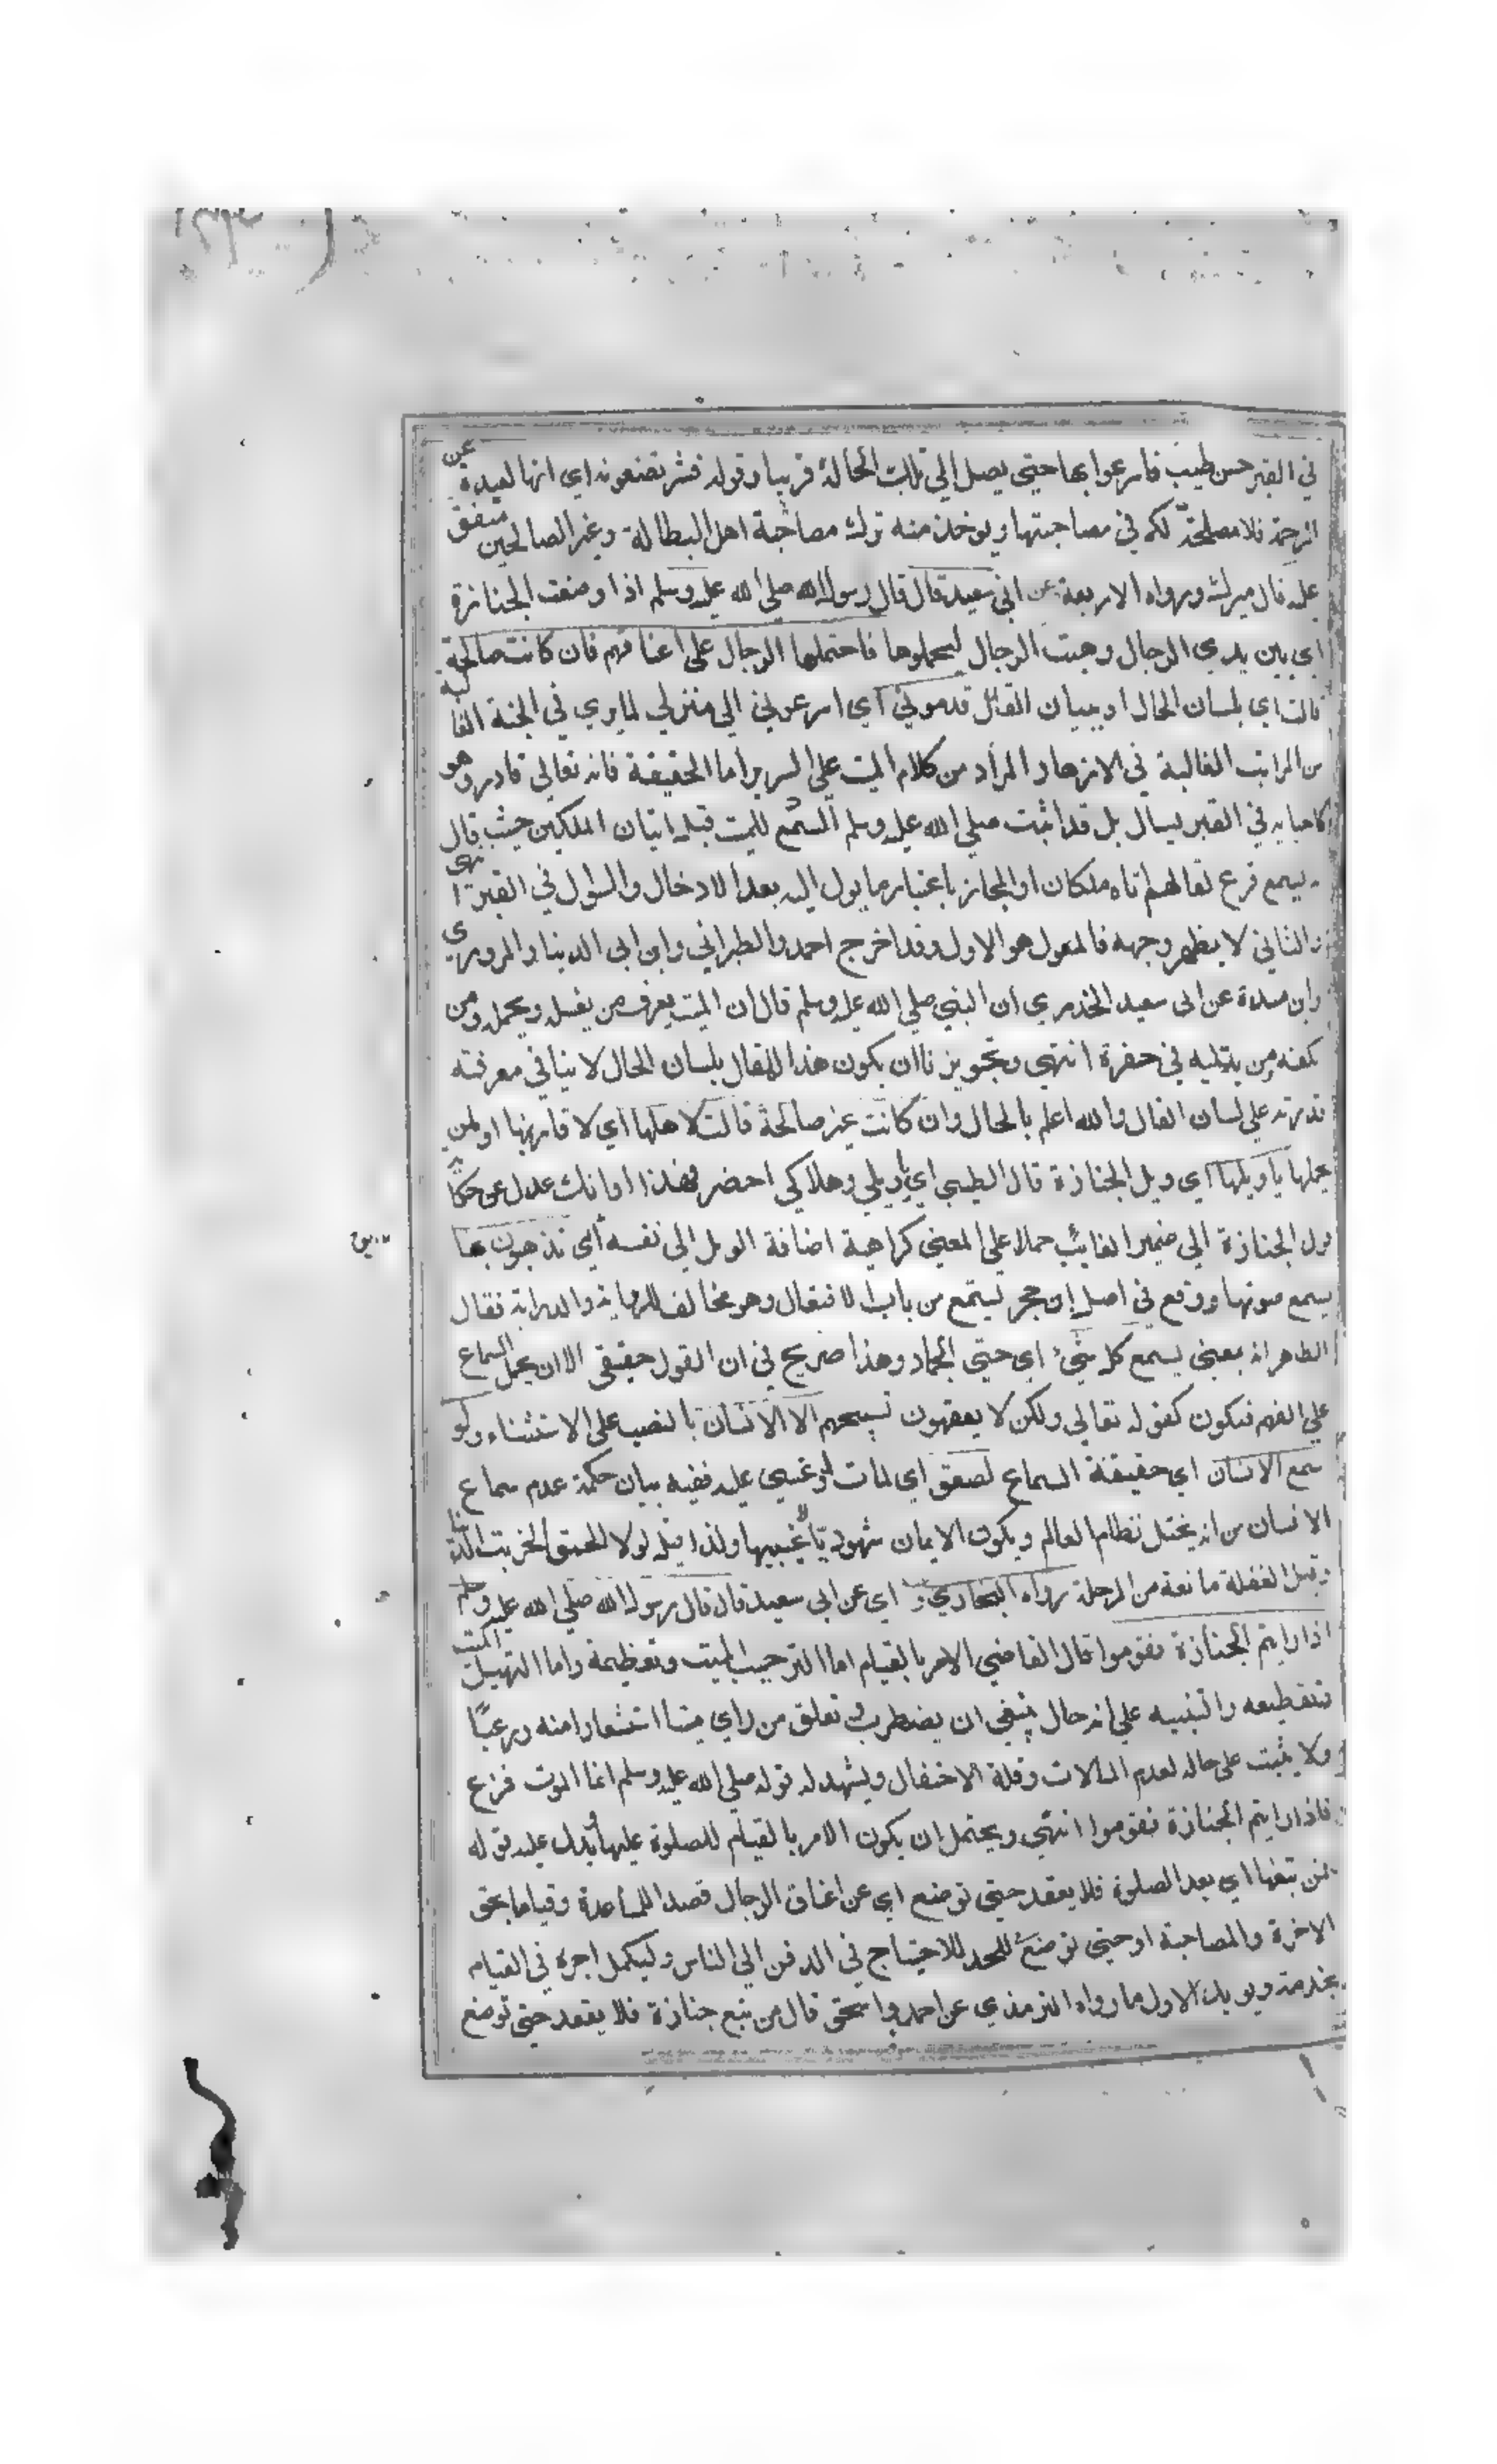 في القبر حسن طيب فاسرعوا بها حتي يصل الي تلك الحالة قريبا وقوله فشر تضعونه اي انها لعيدة عن
الرحمة فلا مصلحة لكم في مصاحبتها ويوخذ منه ترك مصاحبة اهل البطالة وغير الصالحين متفق
عليه قال ميرك ورواه الاربعة عن ابي سعيد قال قال رسول الله صلي الله عليه وسلم اذا وضعت الجنازة
اي بين يدي الرجال وهيت الرجال ليحملوها فاحتملها الرجال علي اعناقهم فان كانت صالحة
قالت اي بلسان الحال او ببيان القائل قدموني اي اسرعوني الي منزلي لما يري في الجنة العا لية
من المراتب الغالبة في الازهار المراد من كلام الميت علي السرير اما الحقيقة فانه تعالي قادر وهو
كاحيايه في القبر ليسال بل قد اثبت صلي الله عليه وسلم السمع للميت قبل اتيان الملكين حيث قال
يسمع قرع نعالهم اتاه ملكان او المجاز باعتبار ما يول اليه بعد الادخال والسوال في القبر انتهي
والثاني لا يظهر وجهه فالمعول هو الاول وقد اخرج احمد والطبراني وابن ابي الدنيا والمروزي
وابن مندة عن ابي سعيد الخدري ان النبي صلي الله عليه وسلم قال ان الميت يعرف من يغسله ويحمله ومن
يكفنه ومن يدليه في حفرة انتهي وتجويزنا ان يكون هذا المقال بلسان الحال لا ينافي معرفته
قدرته علي لسان القال والله اعلم بالحال وان كانت غير صالحة قالت لاهلها اي لاقاربها او لمن
يحملها يا ويلها اي ويل الجنازة قال الطيبي اي يا ويلي وهلاكي احضر فهذا اوانك عدل عن حكا
قول الجنازة الي ضمير الغائب حملا علي المعني كراهية اضافة الويل الي نفسه اين تذهبون بها
يسمع صوتها ووقع في اصل ابن حجر ليستمع من باب الافتعال وهو مخالف للرواية والدراية فقال
الظاهر انه بمعني يسمع كل شيء اي حتي الجماد وهذا صريح في ان القول حقيقي الا ان يحمل السماع
علي الفهم فيكون كقوله تعالي ولكن لا يفقهون تسبيحهم الا الانسان بالنصب علي الاستثناء ولو
سمع الانسان اي حقيقة السماع لصعق اي لمات او غشي عليه ففيه بيان حكمة عدم سماع
الانسان من انه يختل نظام العالم ويكون الايمان شهوديا لا غيبيا ولذا قيل لولا الحمق لخربت الدنيا
وقيل الغفلة مانعة من الرحلة رواه البخاري و اي عن ابي سعيد قال قال رسول الله صلي الله عليه وسلم
اذا رايتم الجنازة فقوموا قال القاضي الامر بالقيام اما الترحيب الميت وتعظيمه واما التهويل الميت
وتفظيعه والتنبيه علي انه حال ينبغي ان يضطرب و تعلق من راي ميتا استشعارا منه ورعبا
ولا يثبت علي حاله لعدم المبالات وقلة الاحتفال ويشهد له قوله صلي الله عليه وسلم انما الموت فزع
فاذا رايتم الجنازة فقوموا انتهي ويحتمل ان يكون الامر بالقيام للصلوة عليها ويدل عليه قوله
فمن تبعها اي بعد الصلوة فلا يقعد حتي توضع اي عن اعناق الرجال قصدا للمساعدة وقياما بحق
الاخرة والمصاحبة او حتي توضع للحد للاحتياج في الدفن الي الناس وليكمل اجره في القيام
بخدمته ويويد الاول ما رواه الترمذي عن احمد واسحق قال من تبع جنازة فلا يقعد حتي توضع